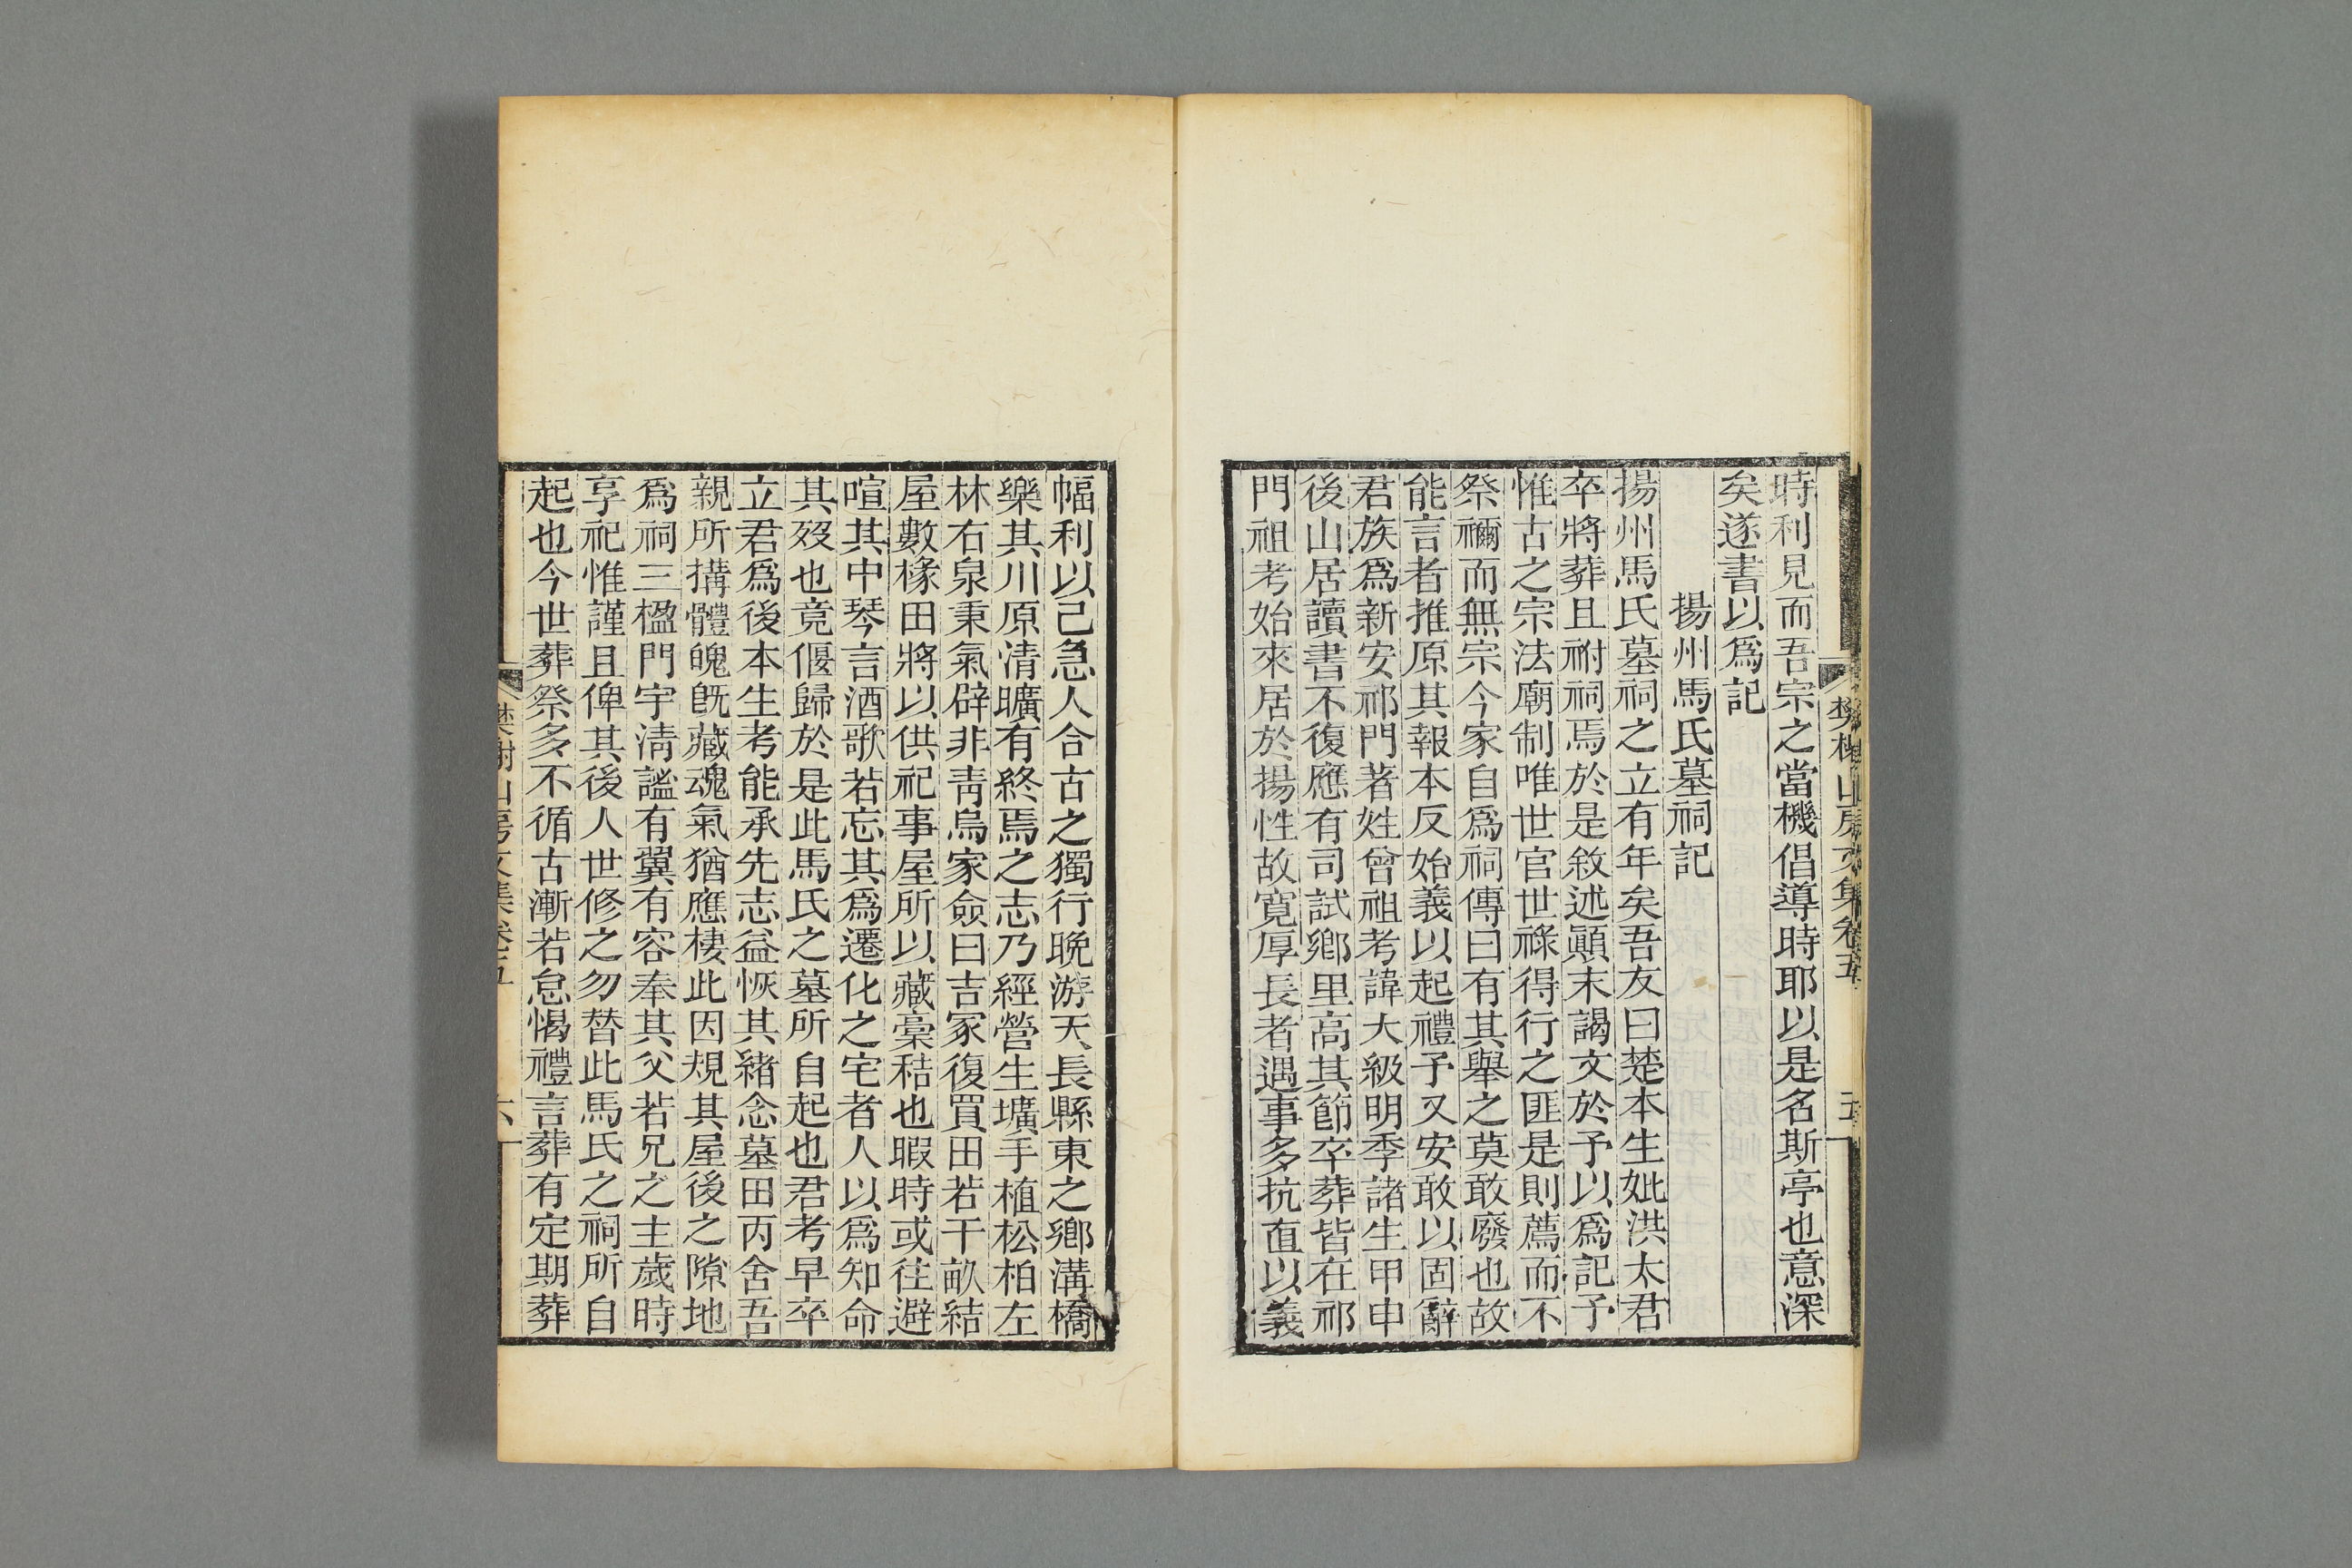 樊榭山房文集卷五
五
時利見而吾宗之當機倡導時耶以是名斯亭也意深
矣遂書以爲記
揚州馬氏墓祠記
揚州馬氏墓祠之立有年矣吾友曰楚本生妣洪太君
卒將葬且祔祠焉於是敘述顚末謁文於予以爲記予
惟古之宗法廟制唯世官世祿得行之匪是則薦而不
祭禰而無宗今家自爲祠傳曰有其舉之莫敢廢也故
能言者推原其報本反始義以起禮予又安敢以固辭
君族爲新安祁門著姓曾祖考諱大級明季諸生甲申
後山居讀書不復應有司試鄉里高其節卒葬皆在祁
門祖考始來居於揚性故寛厚長者遇事多抗直以義
幅利以己急人合古之獨行晚游天長縣東之鄉溝橋
樂其川原清曠有終焉之志乃經營生壙手植松柏左
林右泉秉氣辟非靑烏家僉曰吉冢復買田若干畝結
屋數椽田將以供祀事屋所以藏槀秸也暇時或往避
喧其中琴言酒歌若忘其爲遷化之宅者人以爲知命
其歿也竟偃歸於是此馬氏之墓所自起也君考早卒
立君爲後本生考能承先志益恢其緒念墓田丙舍吾
親所搆體魄旣藏魂氣猶應棲此因規其屋後之隙地
爲祠三楹門宇淸謐有翼有容奉其父若兄之主歲時
享祀惟謹且俾其後人世修之勿替此馬氏之祠所自
起也今世葬祭多不循古漸若怠愒禮言葬有定期葬
樊榭山房文集卷五
六